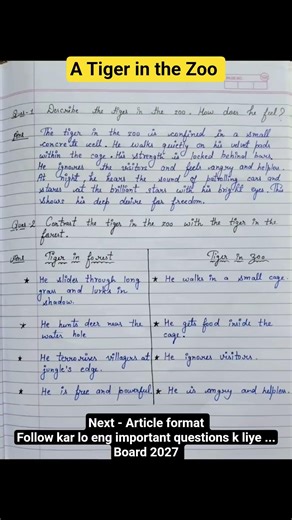 A Tiger in the Zoo
Ques-1 Describe the tiger in the zoo. How does he feel?
Ans The tiger in the zoo is confined in a small
concrete cell. He walks quietly on his velvet pads
within the cage. His strength is locked behind bars.
He ignores the visitors and feels angry and helpless.
At night, he hears the sound of patrolling cars and
stares at the brilliant stars with his bright eyes. This
shows his deep desire for freedom.
Ques-2 Contrast the tiger in the zoo with the tiger in the
forest.
Ans Tiger in forest Tiger in Zoo
★ He slides through long ★ He walks in a small cage.
grass and lurks in
shadow.
★ He hunts deer near the ★ He gets food inside the
water hole cage.
★ He terrorises villagers at ★ He ignores visitors.
jungle's edge.
★ He is free and powerful ★ He is angry and helpless.
Next - Article format
Follow kar lo eng important questions k liye ...
Board 2027